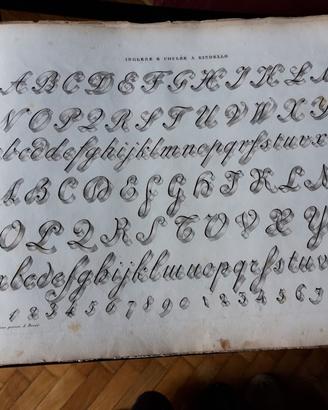 INGLESE E COULÉE A RINDELLO
A B C D E F G H I K L M
N O P Q R S T U V W X Y
b c d d e f g h i j k l m n o p q r s t u v x
A B C D E F G H I K L N
O P Q R S T O V X Y
a b c d e f g h i j k l m n o p q r s t u v
1 2 3 4 5 6 7 8 9 0 1 2 3 4 5 6